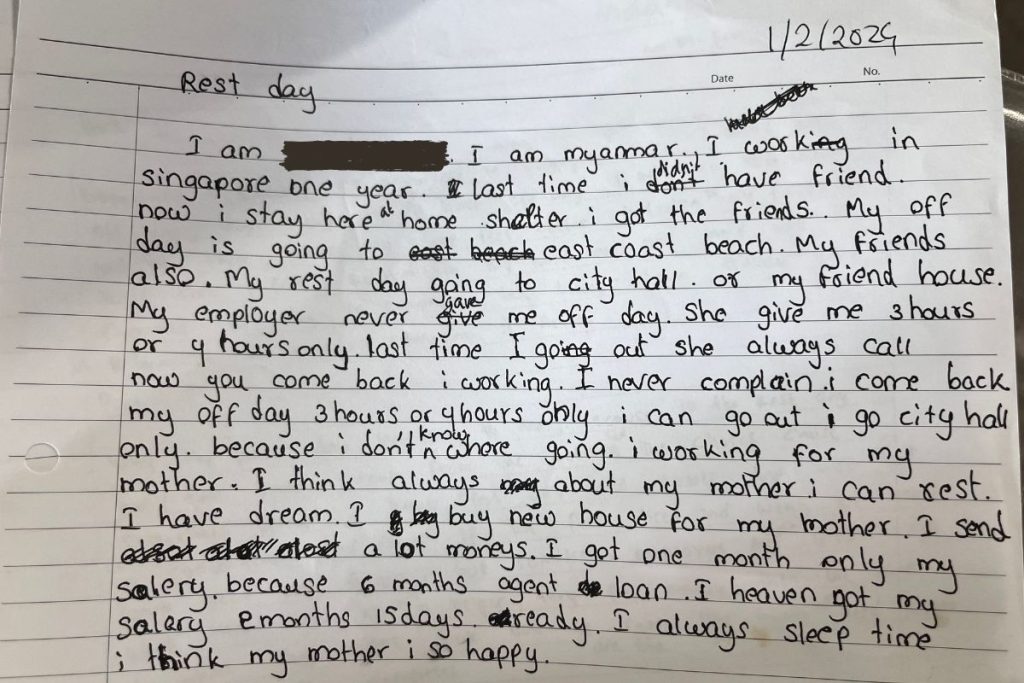 1/2/2024
Date No.
Rest day
I am . I am myanmar. I working in
singapore one year. last time i didn't have friend.
now i stay here at home shelter. i got the friends. My off
day is going to east coast beach. My friends
also. My rest day going to city hall. or my friend house.
My employer never gave me off day. She give me 3hours
or 4 hours only. last time I going out she always call
now you come back i working. I never complain. i come back
my off day 3hours or 4hours only i can go out i go city hall
only. because i don't know where going. i working for my
mother. I think always about my mother. i can rest.
I have dream. I buy new house for my mother. I send
a lot moneys. I got one month only my
salery. because 6 months agent loan. I heaven got my
salary 2months 15days. ready. I always sleep time
i think my mother i so happy.